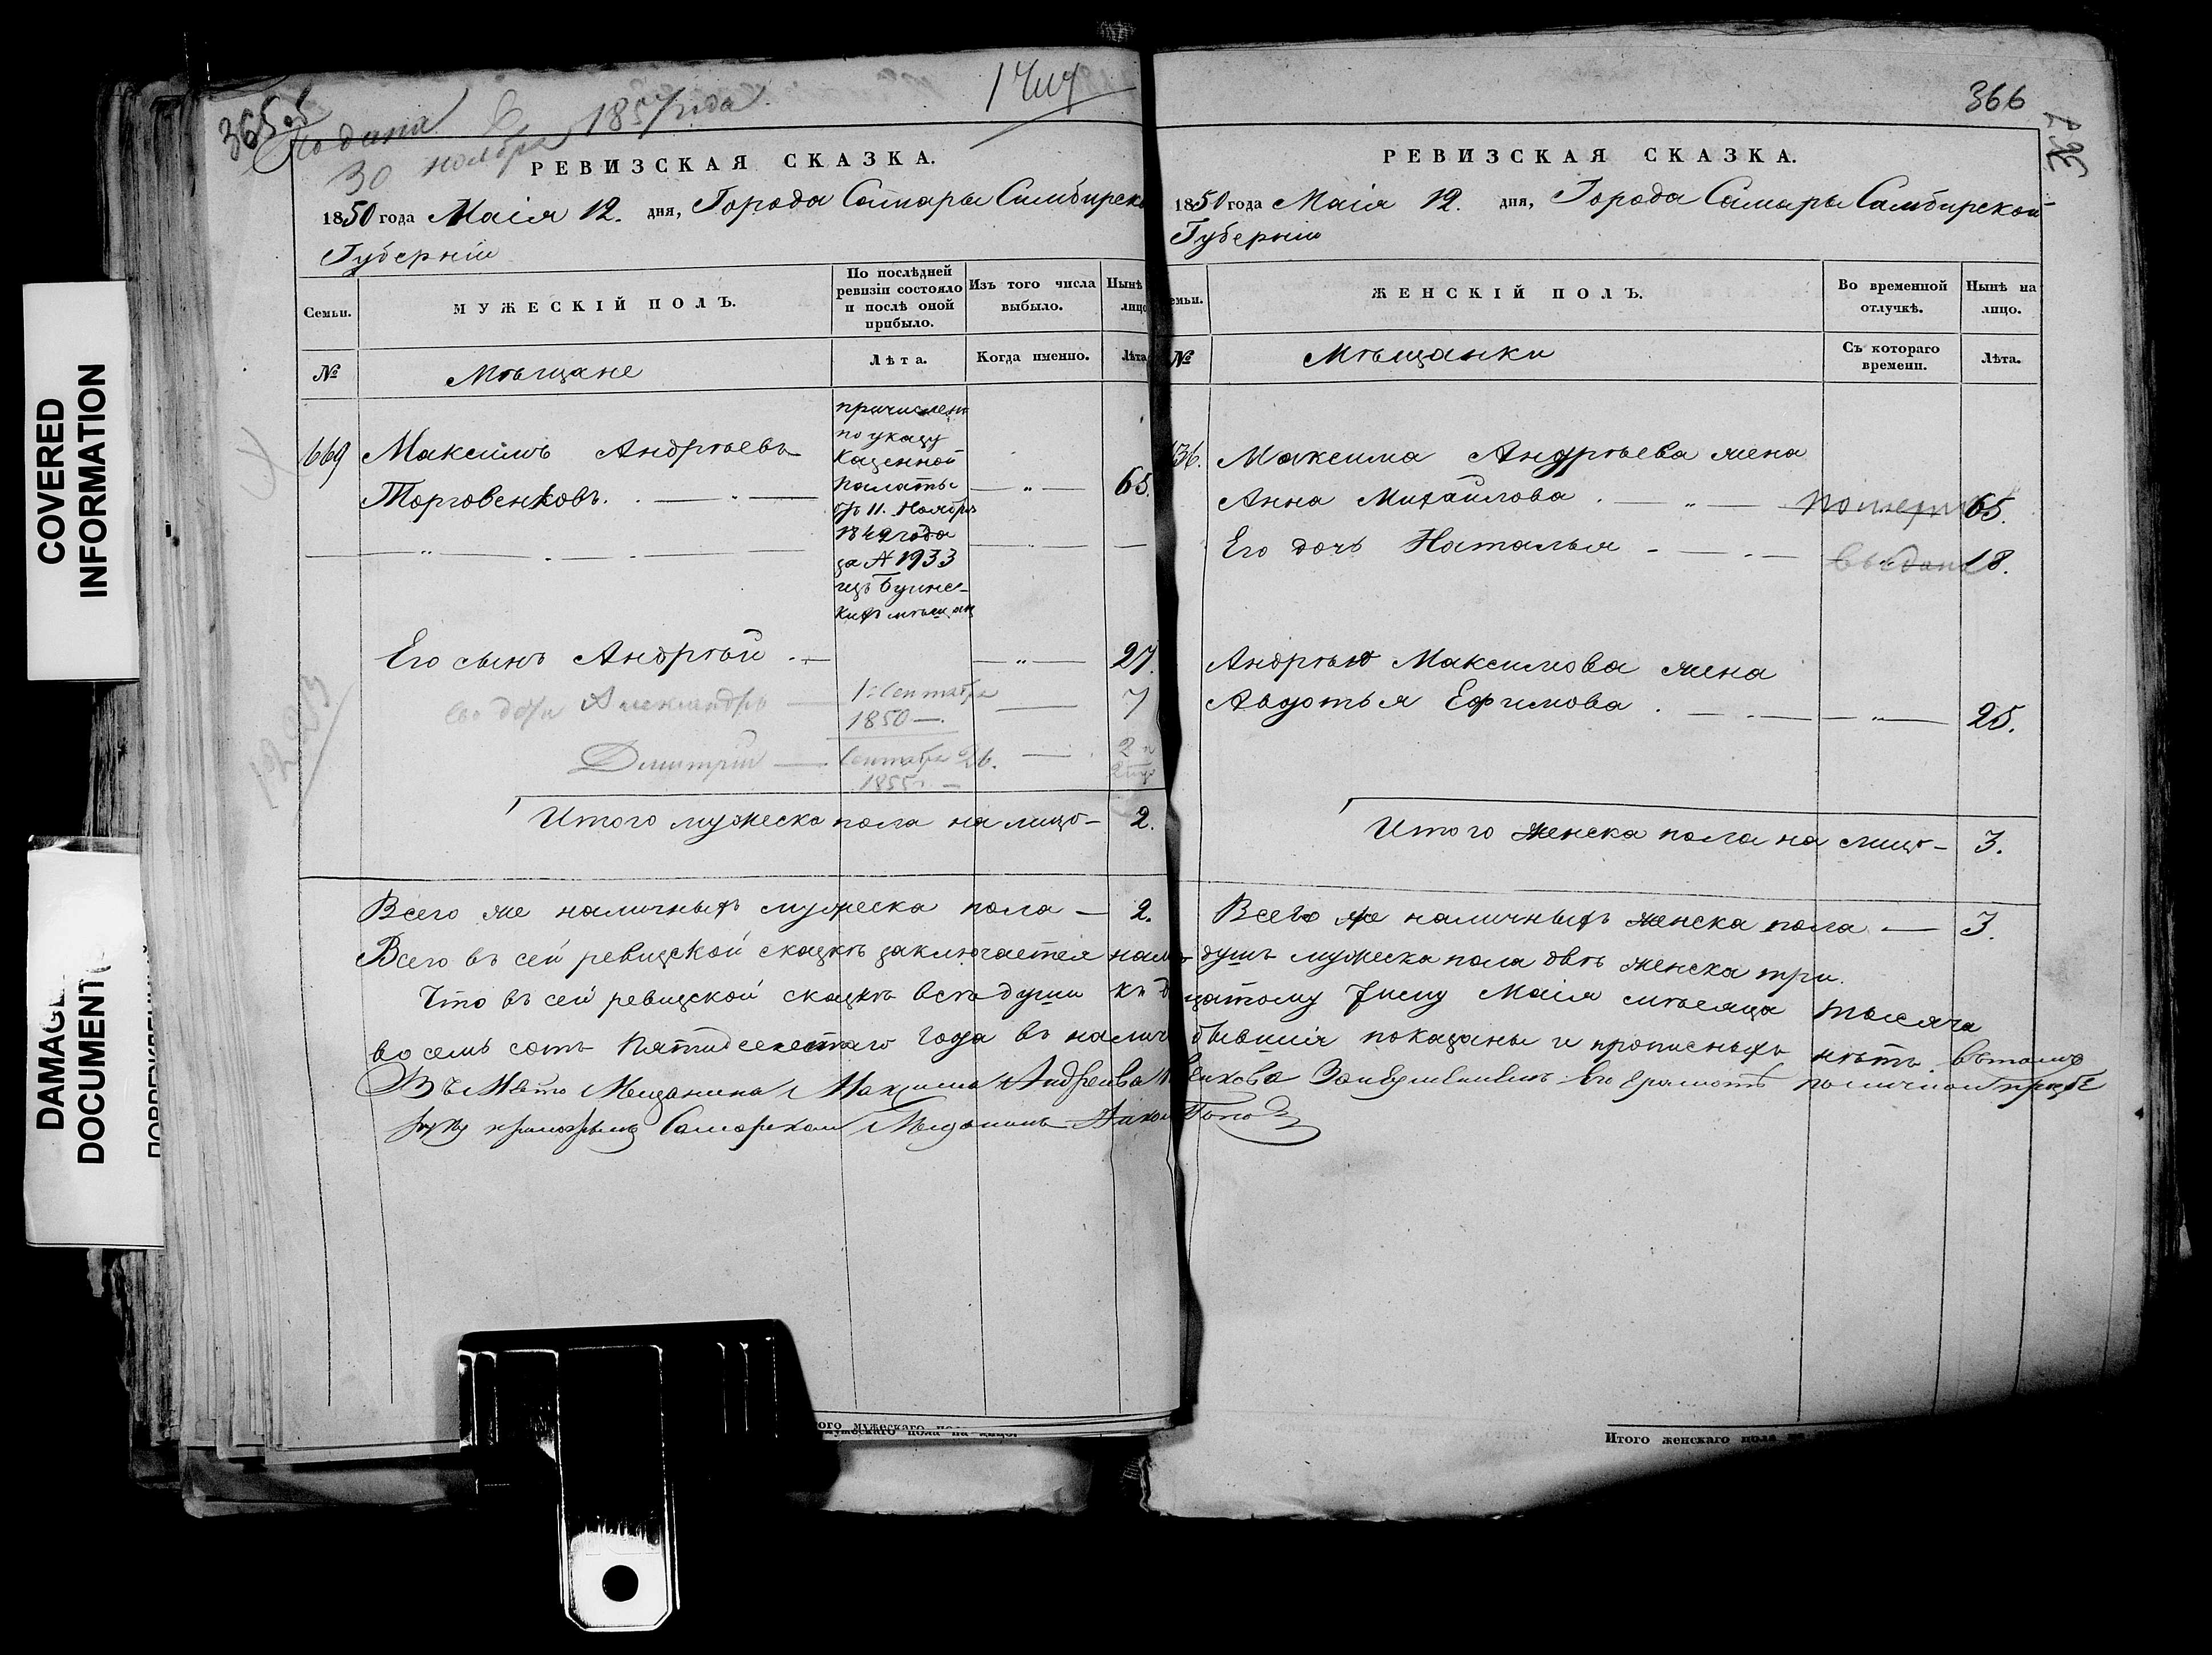 COVERED
INFORMATION
DAMAGE
DOCUMENT
365 об
Подана
30 ноября 1857 года
РЕВИЗСКАЯ СКАЗКА.
1850 года Маія 12. дня, Города Самары Симбирско
Губерніи
Семьи.
МУЖЕСКІЙ ПОЛЪ.
По послѣдней
ревизіи состояло
и послѣ оной
прибыло.
Изъ того числа
выбыло.
Нынѣ
лицо
№
Мѣщане
Лѣта.
Когда именно.
Лѣта
669 Максимъ Андрѣевъ
Торговенковъ.
65.
причисленъ
по указу
Казенной
Палаты
отъ 11. Ноября
1849 года
за № 1933
изъ Буинс-
кихъ мѣщанъ
Его сынъ Андрѣй 27.
его дѣти Александръ 1 Сентября 7
1850
Димитрій Сентября 26. 2
1855
Итого мужеска пола на лицо 2.
Всего же наличныхъ мужеска пола 2.
Всего въ сей ревизской сказкѣ заключается нали
Что въ сей ревизской сказкѣ всѣ души къ д
восемь сотъ Пятидесятаго года въ налич
Въ Мѣсто Мещанина Максима Андреева
руку приложилъ Самарской Мещанинъ
366
РЕВИЗСКАЯ СКАЗКА.
1850 года Маія 12. дня, Города Самары Симбирской
Губерніи
емьи.
ЖЕНСКІЙ ПОЛЪ.
Во временной
отлучкѣ.
Нынѣ на
лицо.
№
Мѣщанки
Съ котораго
времени.
Лѣта.
636. Максима Андрѣева жена
Анна Михайлова 65.
Его дочь Наталья выдана 18.
Андрѣя Максимова жена
Авдотья Ефимова 25.
Итого женска пола на лицо 3.
Всего же наличныхъ женска пола 3.
душъ мужеска пола двѣ женска три.
цатому числу Маія мѣсяца тысяча
бывшія показаны и прописныхъ нѣтъ. въ томъ
енкова За неумѣніемъ его грамотѣ по личной прозбѣ
Попо
ого мужескаго по
мужескаго пола на лицо.
Итого женскаго пола